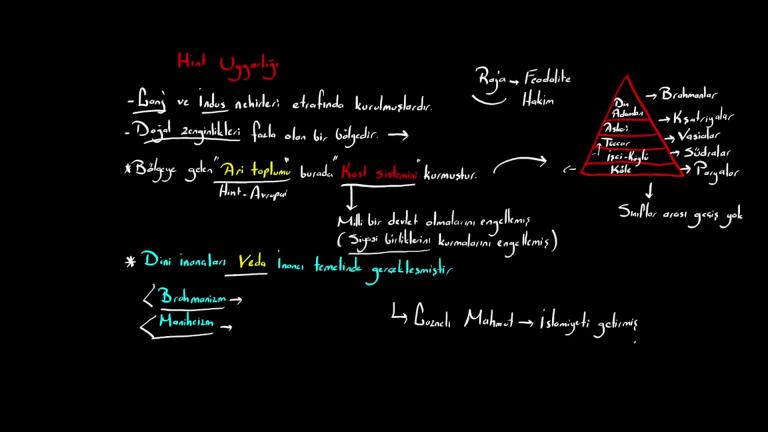 Hint Uygarlığı
- Ganj ve İndus nehirleri etrafında kurulmuşlardır.
- Doğal zenginlikleri fazla olan bir bölgedir. →
* Bölgeye gelen "Ari toplumu" burada "Kast sistemini" kurmuştur.
Hint-Avrupai
Milli bir devlet olmalarını engellemiş
(Siyasi birliklerini kurmalarını engellemiş)
* Dini inançları Veda İnancı temelinde gerçekleşmiştir
Brahmanizm →
Maniheizm →
↳ Gazneli Mahmut → İslamiyeti getirmiş
Raja → Feodalite
Hakim
Din Adamları → Brahmanlar
Asker → Kşatriyalar
Tüccar → Vasialar
İşçi-Köylü → Südralar
Köle → Paryalar
Sınıflar arası geçiş yok